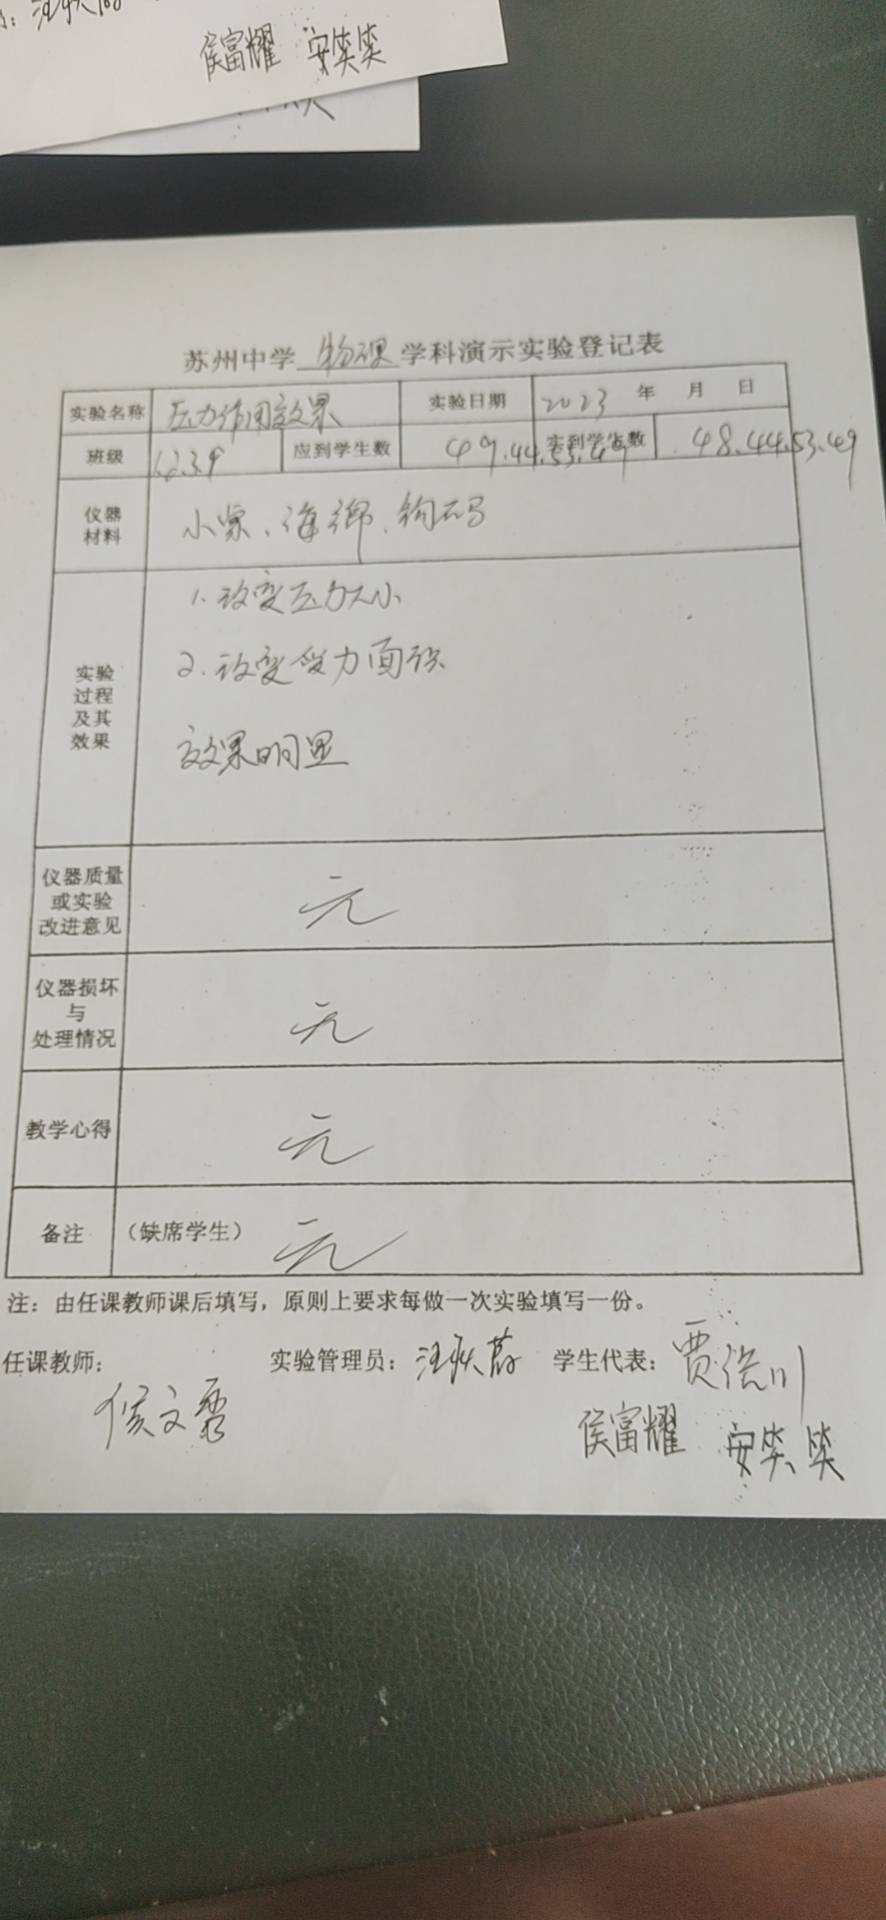 侯富耀 安奕奕
苏州中学 物理 学科演示实验登记表
实验名称 压力作用效果 实验日期 2023 年 月 日
班级 1.2.3.9 应到学生数 49.44.53.49 实到学生数 48.44.53.49
仪器材料 小桌、海绵、钩码
实验过程及其效果
1. 改变压力大小
2. 改变受力面积
效果明显
仪器质量或实验改进意见 无
仪器损坏与处理情况 无
教学心得 无
备注 (缺席学生) 无
注：由任课教师课后填写，原则上要求每做一次实验填写一份。
任课教师： 实验管理员： 学生代表：
侯文 侯富耀 安奕奕